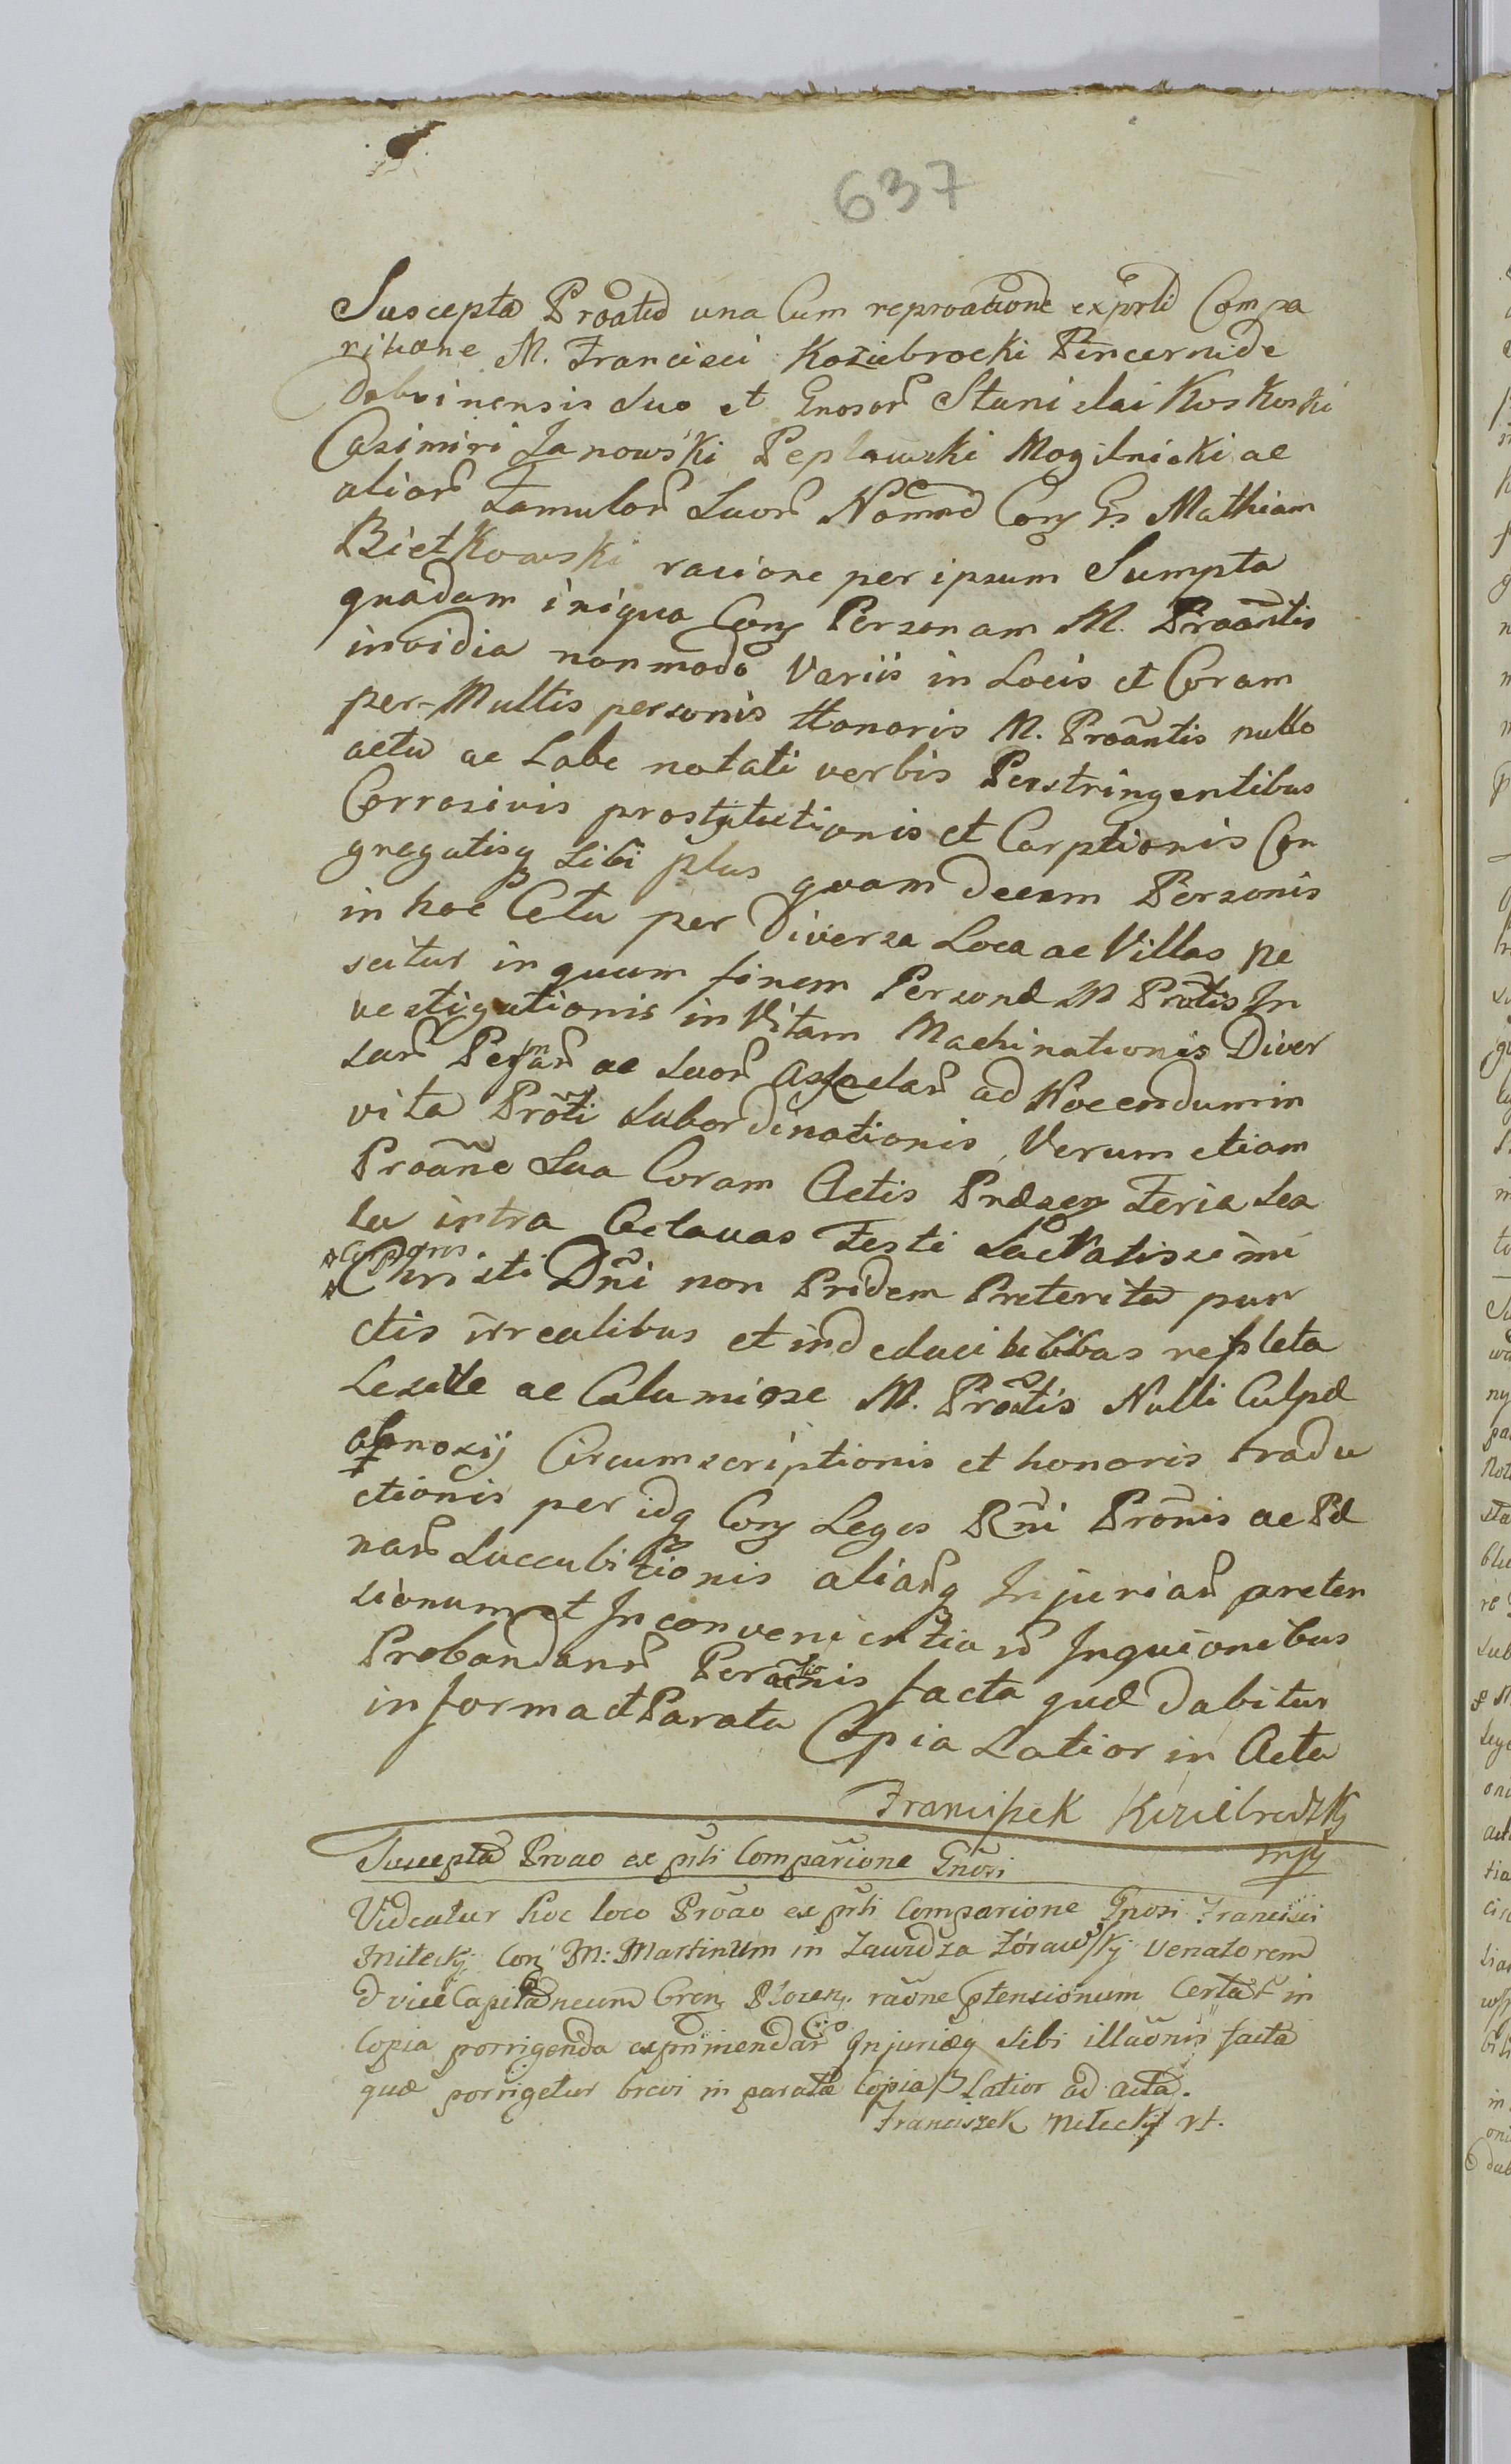 637
Suscepta Proãtio una Cum reproatione ex prti Compa
ritione M. Francisci Koziebrocki Pincernide
dobrinensis suo et Gnosor Stanislai Koskoski
Casimiri Janowski Peplawski Mogilnicki ac
alior Famulor suor Nomine Con Gs Mathiam
Bietkowski racione per ipsum Sumpta
quadam iniqua Con Personam M. Proãntis
invidia non modo Variis in Locis et Coram
per-Multis personis Honoris M. Proãntis nullo
actu ac Labe notati verbis Perstringentibus
Corrosivis prostytutionis et Carptionis Con
gregatisq sibi plus quam decem Personis
in hoc Cetu per Diversa Loca ac Villas ne
scitur in quem finem Personæ M Protis In
vestigationis in Vitam Machinationis Diver
sar ac suor ad Nocendum in
vita Proti subordinationis, Verum etiam
Proãne sua Coram Actis Præsen Feria sex
ta intra Octavas Festi Sacratissimi
Corporis
Christi Dñi non Pridem Preterita pun
ctis irrealibus et indeducibilibus repleta
Lesive ac Calumiose M. Proãtis Nulli Culpæ
obnoxij Circumscriptionis et honoris tradu
ctionis per idq Con Leges Rñi Prõnis ac Pæ
nar succubitionis aliarq Injuriar preten
sionum et Inconvenientiar Inquiõnibus
Probandar Peractionis facta quæ dabitur
in forma et Parata Copia Latior in Acta
Franciszek Koziebrodzky
mp
Suscepta Proao ex prti Comparione Gñosi
Videatur hoc loco Proão ex prti Comparione Gnosi Francisci
Mileckj Con M: Martinum in Zawidza Zórawskj Venatorem
d viceCapitaneum Gren Plocen. raõne ptensionum Certar in
Copia porrigenda exprimendar Injuriæq sibi illaõnis facta
quæ porrigetur brevi in parata Copia Latior ad acta.
Franciszek Mileckj